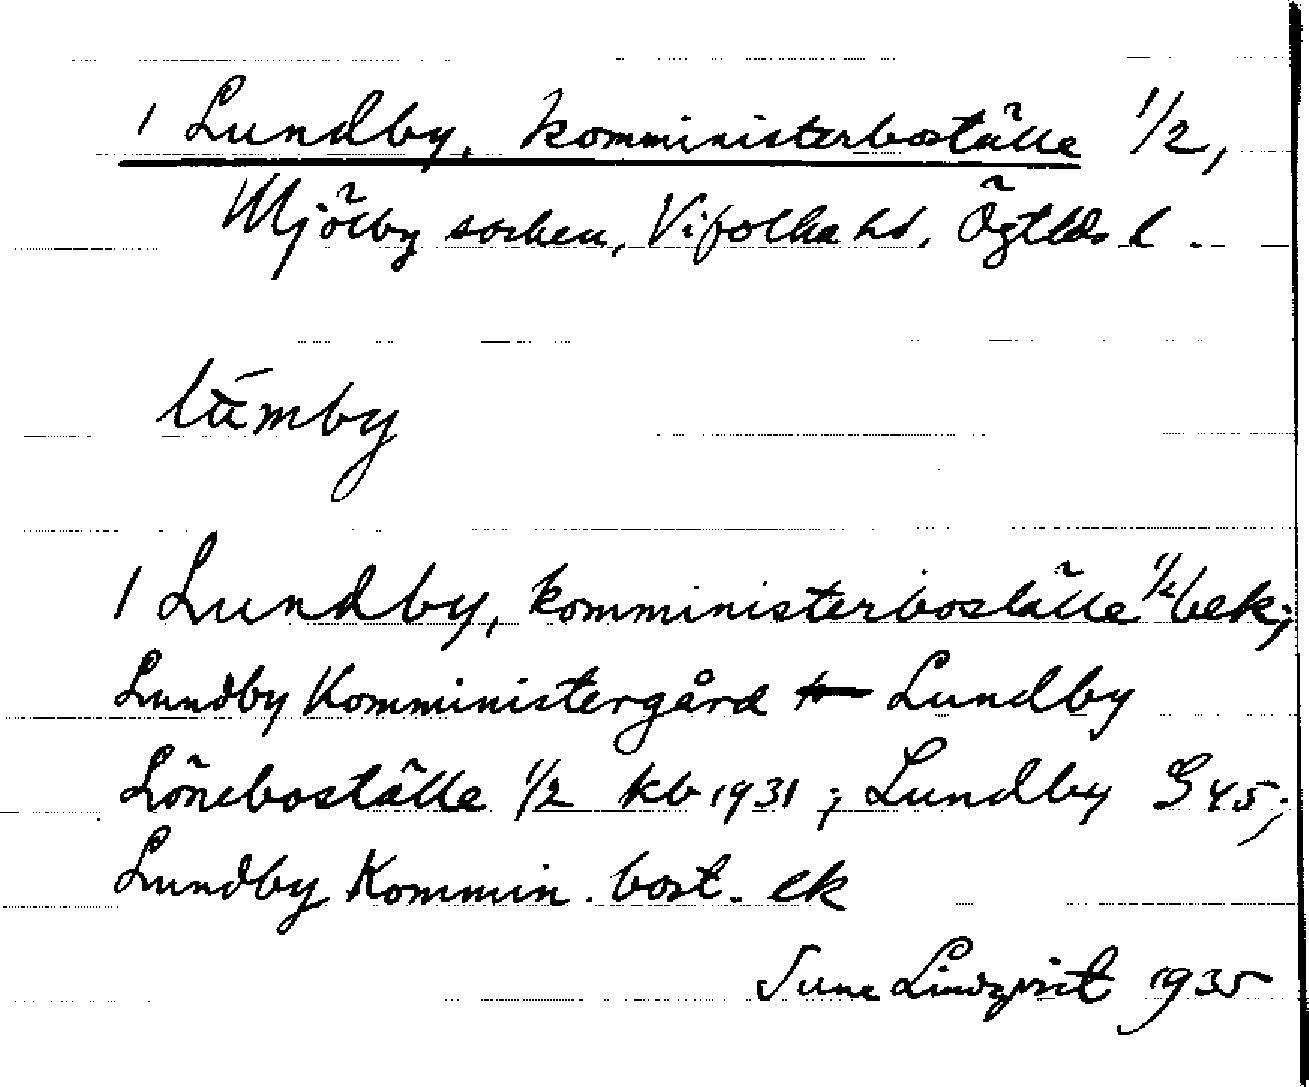 1 Lundby, komministerboställe 1/2,
Mjölby socken, Vifolka hd, Ögtlds l.
lu̅mby
1 Lundby, komministerboställe 1/2 bek;
Lundby Komministergård Lundby
Löneboställe 1/2 kb 1931; Lundby G 45;
Lundby Kommin. bost. ek
Sune Lindqvist 1935